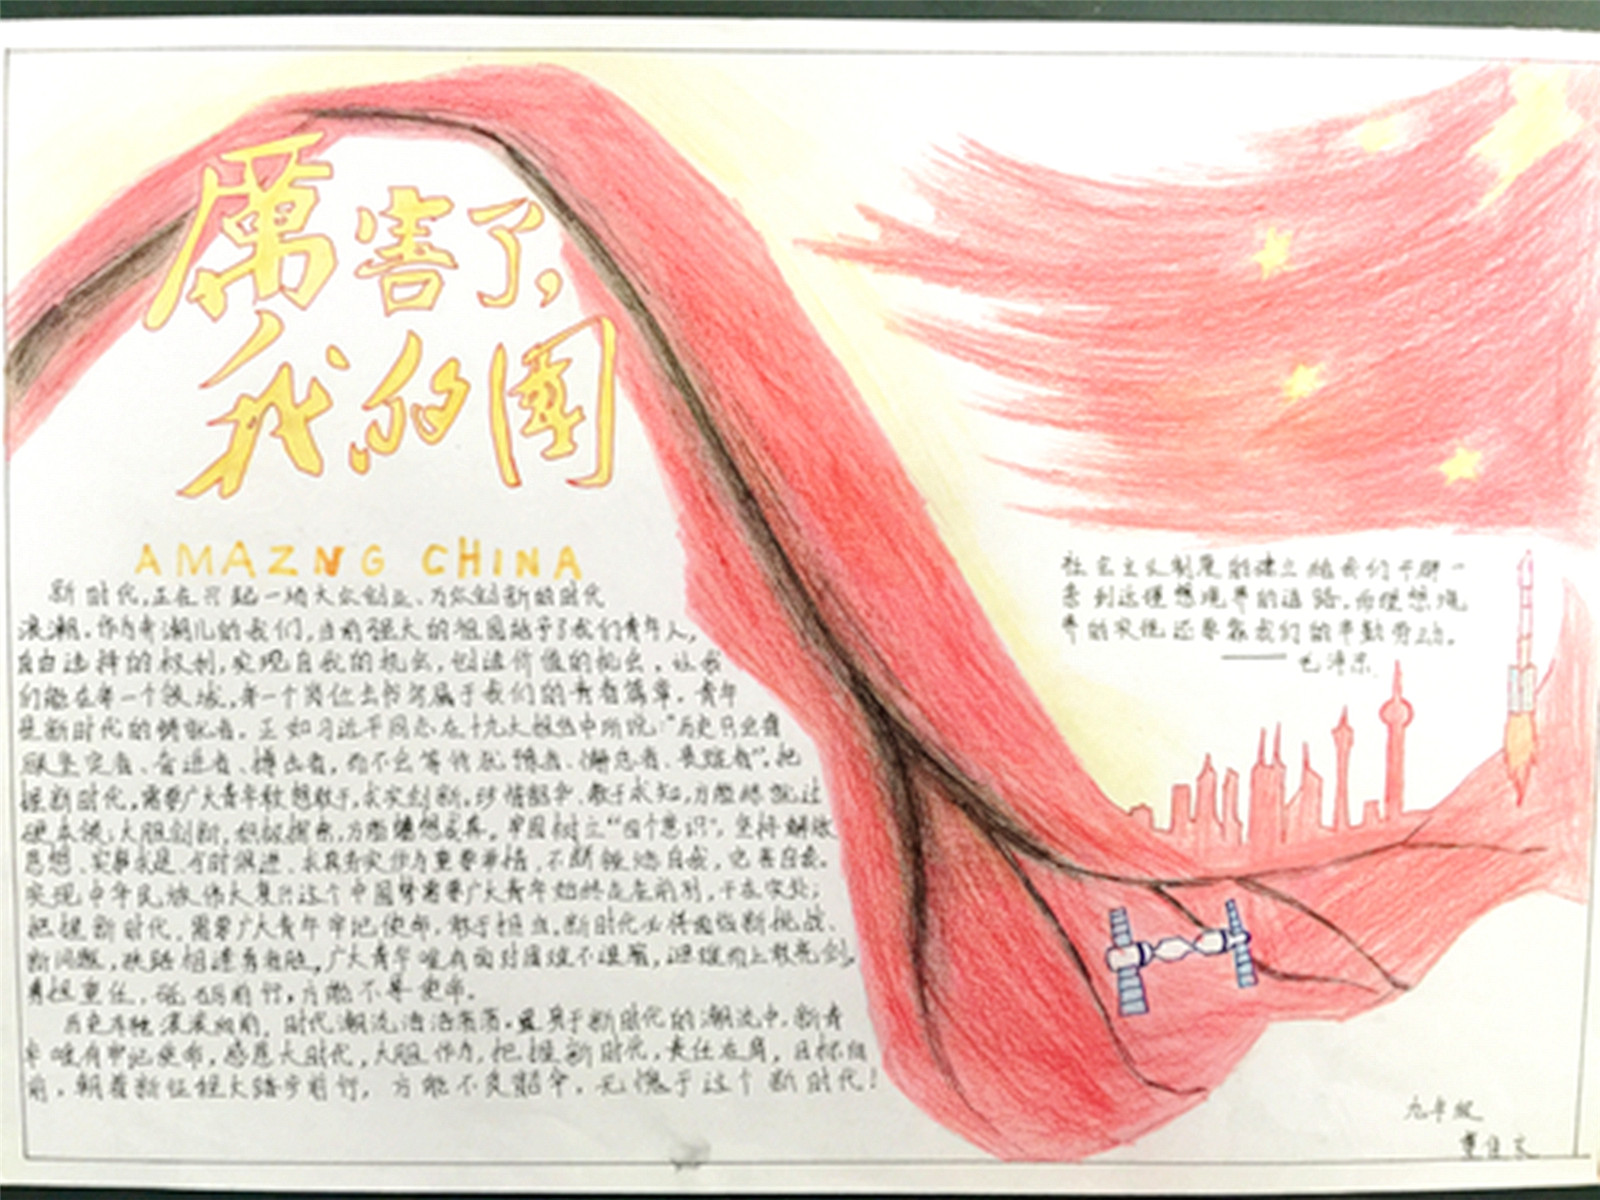 厲害了,
我的國
AMAZNG CHINA
新时代,正在兴起一场大众创业、万众创新的时代
浪潮。作为弄潮儿的我们,当前强大的祖国给予了我们青年人,
自由选择的权利,实现自我的机会,创造价值的机会。让我
们能在每一个领域,每一个岗位去书写属于我们的青春篇章。青年
是新时代的
正如习近平同志在十九大报告中所说:“历史只会眷
顾坚定者、奋进者、搏击者,而不会等待犹豫者、懈怠者、畏难者”。把
握新时代,需要广大青年敢想敢干,求实创新,
大胆创新,积极探索,方能梦想成真。牢固树立“四个意识”,坚持解放
思想、实事求是、与时俱进、求真务实作为重要
实现中华民族伟大复兴这个中国梦需要广大青年始终走在前列,干在实处;
把握新时代,需要广大青年牢记使命,敢于担当,新时代必将面临新挑战、
新问题,狭路相逢勇者胜,广大青年唯有面对困难不退缩,迎难而上敢亮剑,
勇担重任,砥砺前行,方能不辱使命。
历史车轮滚滚向前,时代潮流浩浩荡荡。置身于新时代的潮流中,新青
年唯有牢记使命,感恩大时代,大胆作为,把握新时代,责任在肩,目标在
前,朝着新征程大踏步前行,方能不负韶华,无愧于这个新时代!
社会主义制度的建立给我们开辟一
条到达理想境界的道路,而理想境
界的实现还要靠我们的辛勤劳动。
——毛泽东
九年级